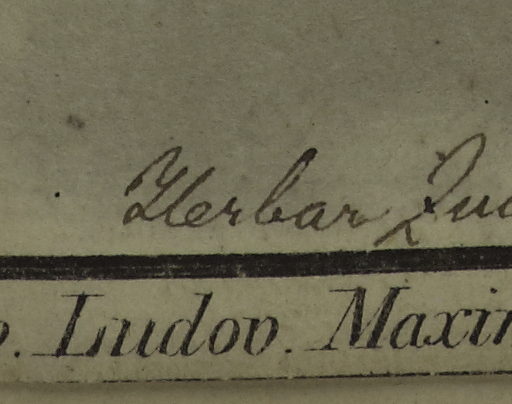 Herbar Zuc
o. Ludov. Maxim